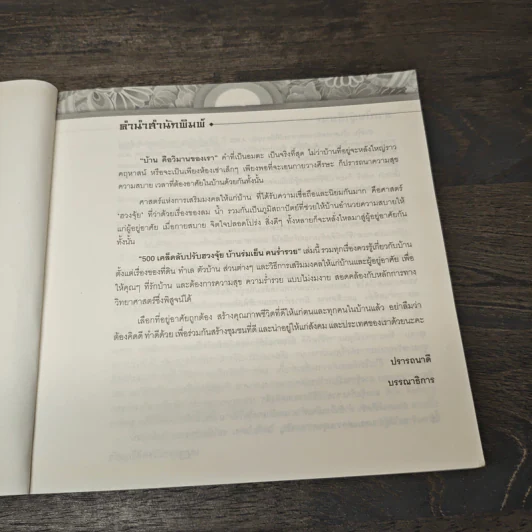 คำนำสำนักพิมพ์
"บ้าน คือวิมานของเรา" คำที่เป็นอมตะ เป็นจริงที่สุด ไม่ว่าบ้านที่อยู่จะหลังใหญ่ราว
คฤหาสน์ หรือจะเป็นเพียงห้องเช่าเล็กๆ เพียงพอที่จะเอนกายวางศีรษะ ก็ปรารถนาความสุข
ความสบาย เวลาที่ต้องอาศัยในบ้านด้วยกันทั้งนั้น
ศาสตร์แห่งการเสริมมงคลให้แก่บ้าน ที่ได้รับความเชื่อถือและนิยมกันมาก คือศาสตร์
"ฮวงจุ้ย" ที่ว่าด้วยเรื่องของลม น้ำ รวมกันเป็นภูมิสถาปัตย์ที่ช่วยให้บ้านอำนวยความสบายให้
แก่ผู้อยู่อาศัย เมื่อกายสบาย จิตใจปลอดโปร่ง สิ่งดีๆ ทั้งหลายก็จะหลั่งไหลมาสู่ผู้อยู่อาศัยกัน
ทั้งนั้น
"500 เคล็ดลับปรับฮวงจุ้ย บ้านร่มเย็น คนร่ำรวย" เล่มนี้ รวมทุกเรื่องควรรู้เกี่ยวกับบ้าน
ตั้งแต่เรื่องของที่ดิน ทำเล ตัวบ้าน ส่วนต่างๆ และวิธีการเสริมมงคลให้แก่บ้านและผู้อยู่อาศัย เพื่อ
ให้คุณๆ ที่รักบ้าน และต้องการความสุข ความร่ำรวย แบบไม่งมงาย สอดคล้องกับหลักการทาง
วิทยาศาสตร์ซึ่งพิสูจน์ได้
เลือกที่อยู่อาศัยถูกต้อง สร้างคุณภาพชีวิตที่ดีให้แก่ตนและทุกคนในบ้านแล้ว อย่าลืมว่า
ต้องคิดดี ทำดีด้วย เพื่อร่วมกันสร้างชุมชนที่ดี และน่าอยู่ให้แก่สังคม และประเทศของเราด้วยนะคะ
ปรารถนาดี
บรรณาธิการ